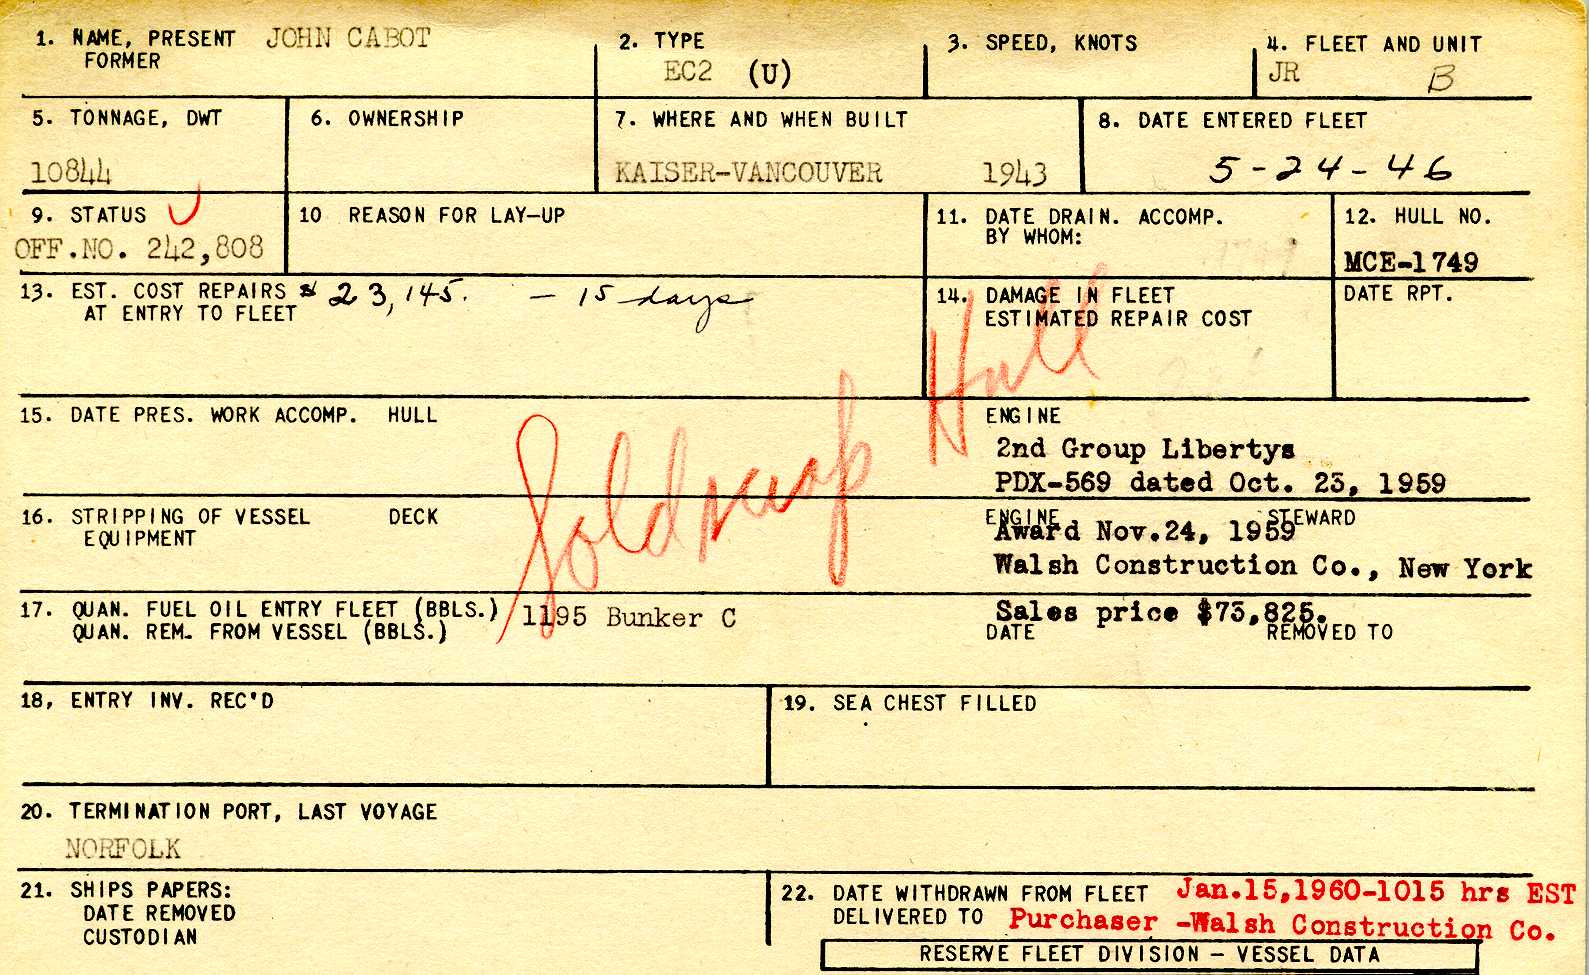 1. NAME, PRESENT JOHN CABOT
FORMER
2. TYPE
EC2 (U)
3. SPEED, KNOTS
4. FLEET AND UNIT
JR B
5. TONNAGE, DWT
10844
6. OWNERSHIP
7. WHERE AND WHEN BUILT
KAISER-VANCOUVER 1943
8. DATE ENTERED FLEET
5-24-46
9. STATUS
OFF.NO. 242,808
10 REASON FOR LAY-UP
11. DATE DRAIN. ACCOMP.
BY WHOM:
12. HULL NO.
MCE-1749
13. EST. COST REPAIRS $ 23,145. - 15 days
AT ENTRY TO FLEET
14. DAMAGE IN FLEET
ESTIMATED REPAIR COST
DATE RPT.
Sold scrap Hull
15. DATE PRES. WORK ACCOMP. HULL ENGINE
2nd Group Libertys
PDX-569 dated Oct. 23, 1959
16. STRIPPING OF VESSEL DECK ENGINE STEWARD
EQUIPMENT
Award Nov.24, 1959
Walsh Construction Co., New York
17. QUAN. FUEL OIL ENTRY FLEET (BBLS.) 1195 Bunker C
Sales price $73,825.
QUAN. REM. FROM VESSEL (BBLS.) DATE REMOVED TO
18, ENTRY INV. REC'D
19. SEA CHEST FILLED
20. TERMINATION PORT, LAST VOYAGE
NORFOLK
21. SHIPS PAPERS:
DATE REMOVED
CUSTODIAN
22. DATE WITHDRAWN FROM FLEET Jan.15,1960-1015 hrs EST
DELIVERED TO Purchaser -Walsh Construction Co.
RESERVE FLEET DIVISION - VESSEL DATA